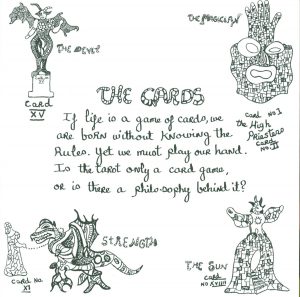 THE DEVEL
CARD
XV
THE MAGICIAN
CARD No I
the High
Priestess
CARD No II
THE CARDS
If life is a game of cards, we
are born without knowing the
Rules. Yet we must play our hand.
Is the tarot only a card game,
or is there a philosophy behind it?
STRENGTH
CARD No.
XI
THE SUN
CARD
No XVIIII